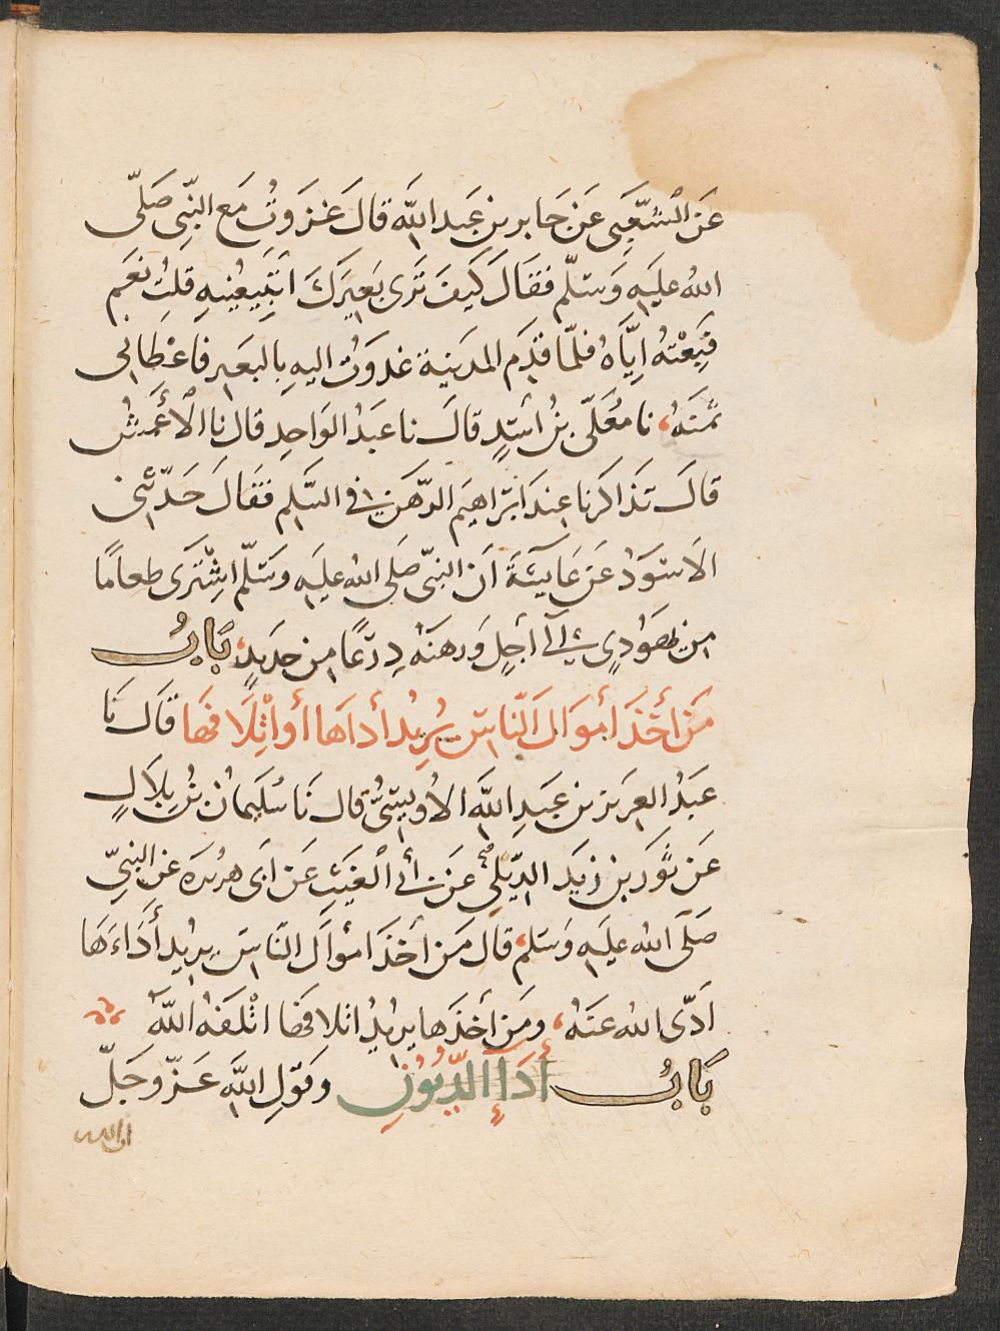 عَنِ الشَّعْبِيِّ عَنْ جَابِرِ بْنِ عَبدِ اللهِ قَالَ غَزَوتُ مَعَ النَّبِيِّ صَلَّى
اللهُ عَلَيهِ وَسَلَّم فَقَالَ كَيْفَ تَرَى بَعِيرَكَ اَتَبِيعُنِيهِ قُلتُ نَعَم
فَبِعْتُهُ اِيَّاهُ فَلَمَّا قَدِمَ المَدِينَةَ غَدَوتُ اليهِ بِالبَعِيرِ فَاَعْطَانِى
ثَمَنَهُ، نا مُعَلَّى بنُ اَسَدٍ قالَ نا عَبدُ الوَاحِدِ قال نا الأَعْمَشُ
قالَ تَذَاكَرنا عِندَ اِبْرَاهِيمَ الرَّهَنَ فى السَّلَمِ فَقَالَ حَدَّثَنِى
الاَسْوَدُ عَن عَايِشَةَ اَنَّ النبىَّ صَلى الله عليه وسَلَّم اِشْتَرَى طعامًا
مِن يَهُودِيٍّ اِلَى اَجَلٍ وَرَهَنَهُ دِرعًا مِن حَدِيدٍ، بَابُ
مَنْ أَخَذَ أَموَالَ النَّاسِ يُرِيدُ أَدَاهَا أَو اِتْلَافَهَا قَالَ نَا
عَبدُ العَزِيزِ بن عَبدِ اللهِ الأُوَيسِىُّ قال نَا سُلَيمانُ بنُ بِلَالٍ
عَن ثَورِ بنِ زَيدِ الدِّيلِى صح عَن أَبى الغَيثِ عَن اَبى هريرَةَ عَنِ النَّبِىِّ
صَلَّى الله عليهِ وَسَلم، قال مَن أَخَذَ اَموَالَ النَّاسِ يريدُ أَدَاءَهَا
اَدَّى الله عَنهُ، ومَن أَخَذَها يريدُ اتلافَهَا اَتْلَفَهُ اللهُ
بَابُ أَدَاءِ الدُّيُونِ وقَولِ اللهِ عَزَّ وجَلَّ
ان الله